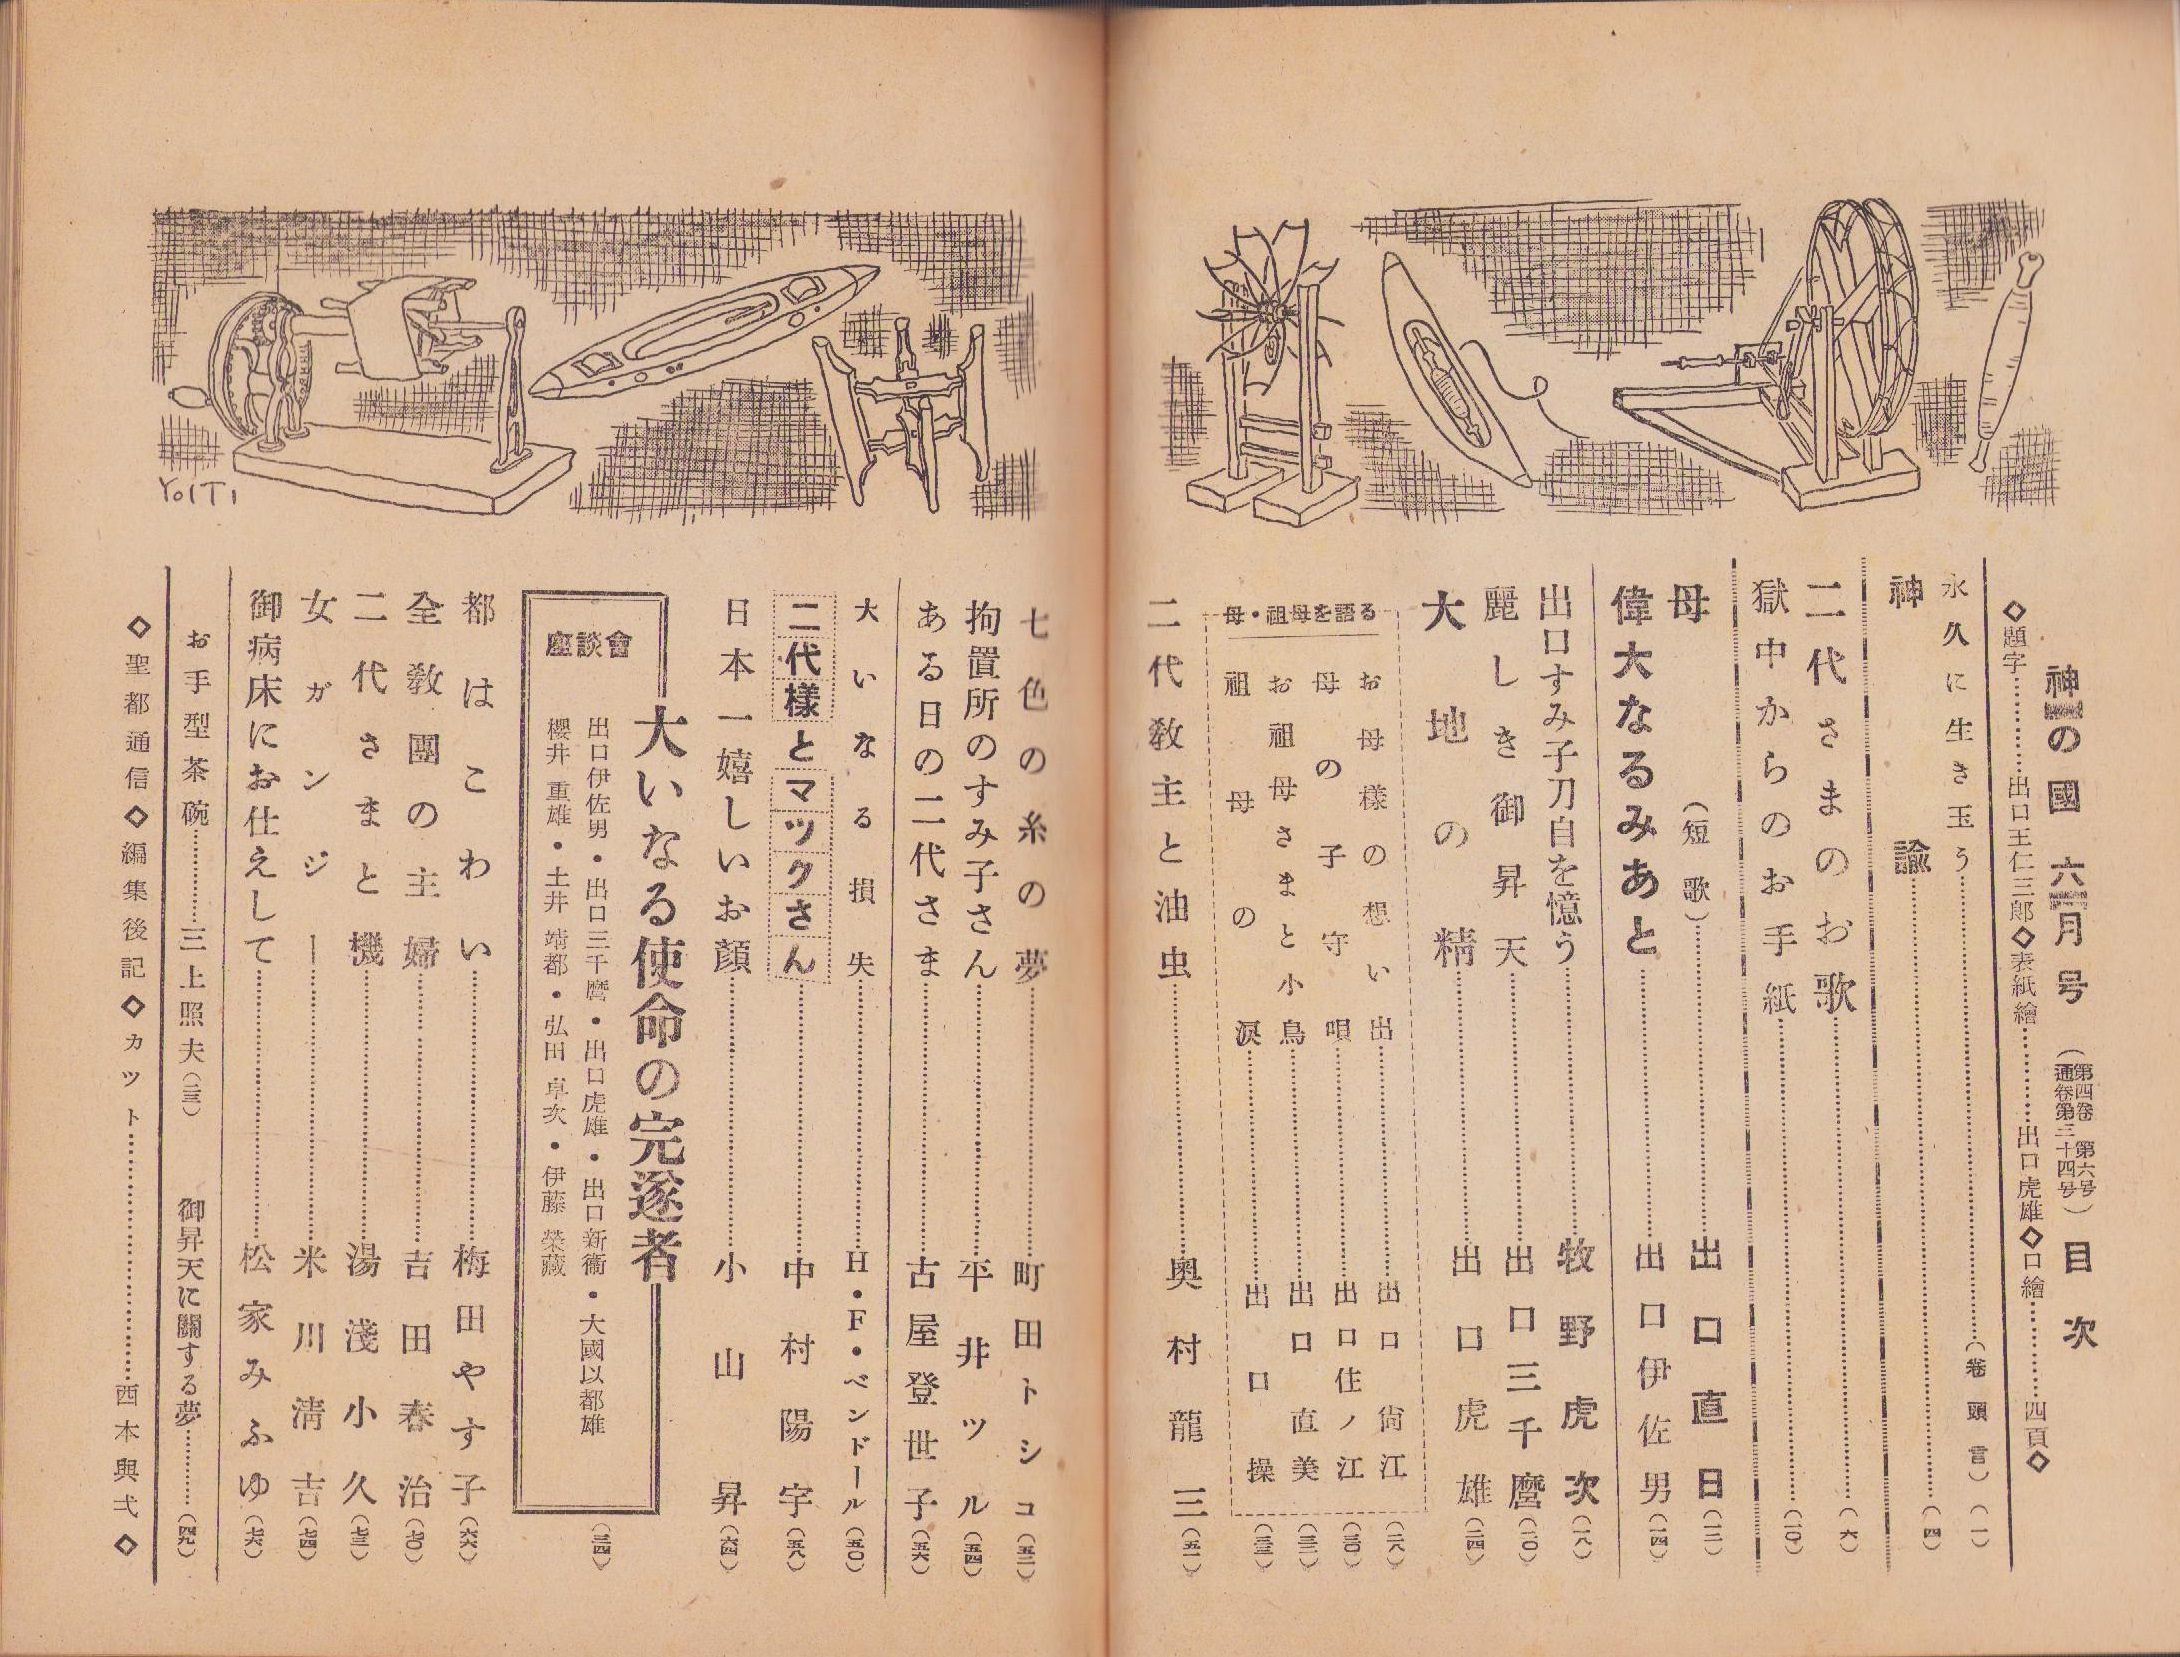 神の國 六月号 (第四卷 第六号 通卷第三十四号) 目次
◇題字…………出口王仁三郎◇表紙繪…………出口虎雄◇口繪…………四頁◇
永久に生き玉う…………(卷頭言)(一)
神諭…………(四)
二代さまのお歌…………(六)
獄中からのお手紙…………(一〇)
母(短歌)…………出口直日(一二)
偉大なるみあと…………出口伊佐男(一四)
出口すみ子刀自を憶う…………牧野虎次(一八)
麗しき御昇天…………出口三千麿(二〇)
大地の精…………出口虎雄(二四)
母・祖母を語る
お母様の想い出…………出口尙江(二八)
母の子守唄…………出口住ノ江(三〇)
お祖母さまと小鳥…………出口直美(三二)
祖母の涙…………出口操(三三)
二代教主と油虫…………奥村龍三(五一)
七色の糸の夢…………町田トシコ(五二)
拘置所のすみ子さん…………平井ツル(五四)
ある日の二代さま…………古屋登世子(五六)
大いなる損失…………H・F・ベンドール(五〇)
二代様とマックさん…………中村陽宇(五八)
日本一嬉しいお顔…………小山昇(六四)
大いなる使命の完遂者
座談會
出口伊佐男・出口三千麿・出口虎雄・出口新衞・大國以都雄
櫻井重雄・土井靖都・弘田卓次・伊藤榮藏
(三四)
都はこわい…………梅田やす子(六六)
全教團の主婦…………吉田春治(七〇)
二代さまと機…………湯淺小久(七三)
女ガンジー…………米川淸吉(七四)
御病床にお仕えして…………松家みふゆ(七六)
お手型茶碗…………三上照夫(三三) 御昇天に關する夢…………(四九)
◇聖都通信◇編集後記◇カット…………西本與弌◇
YOITI